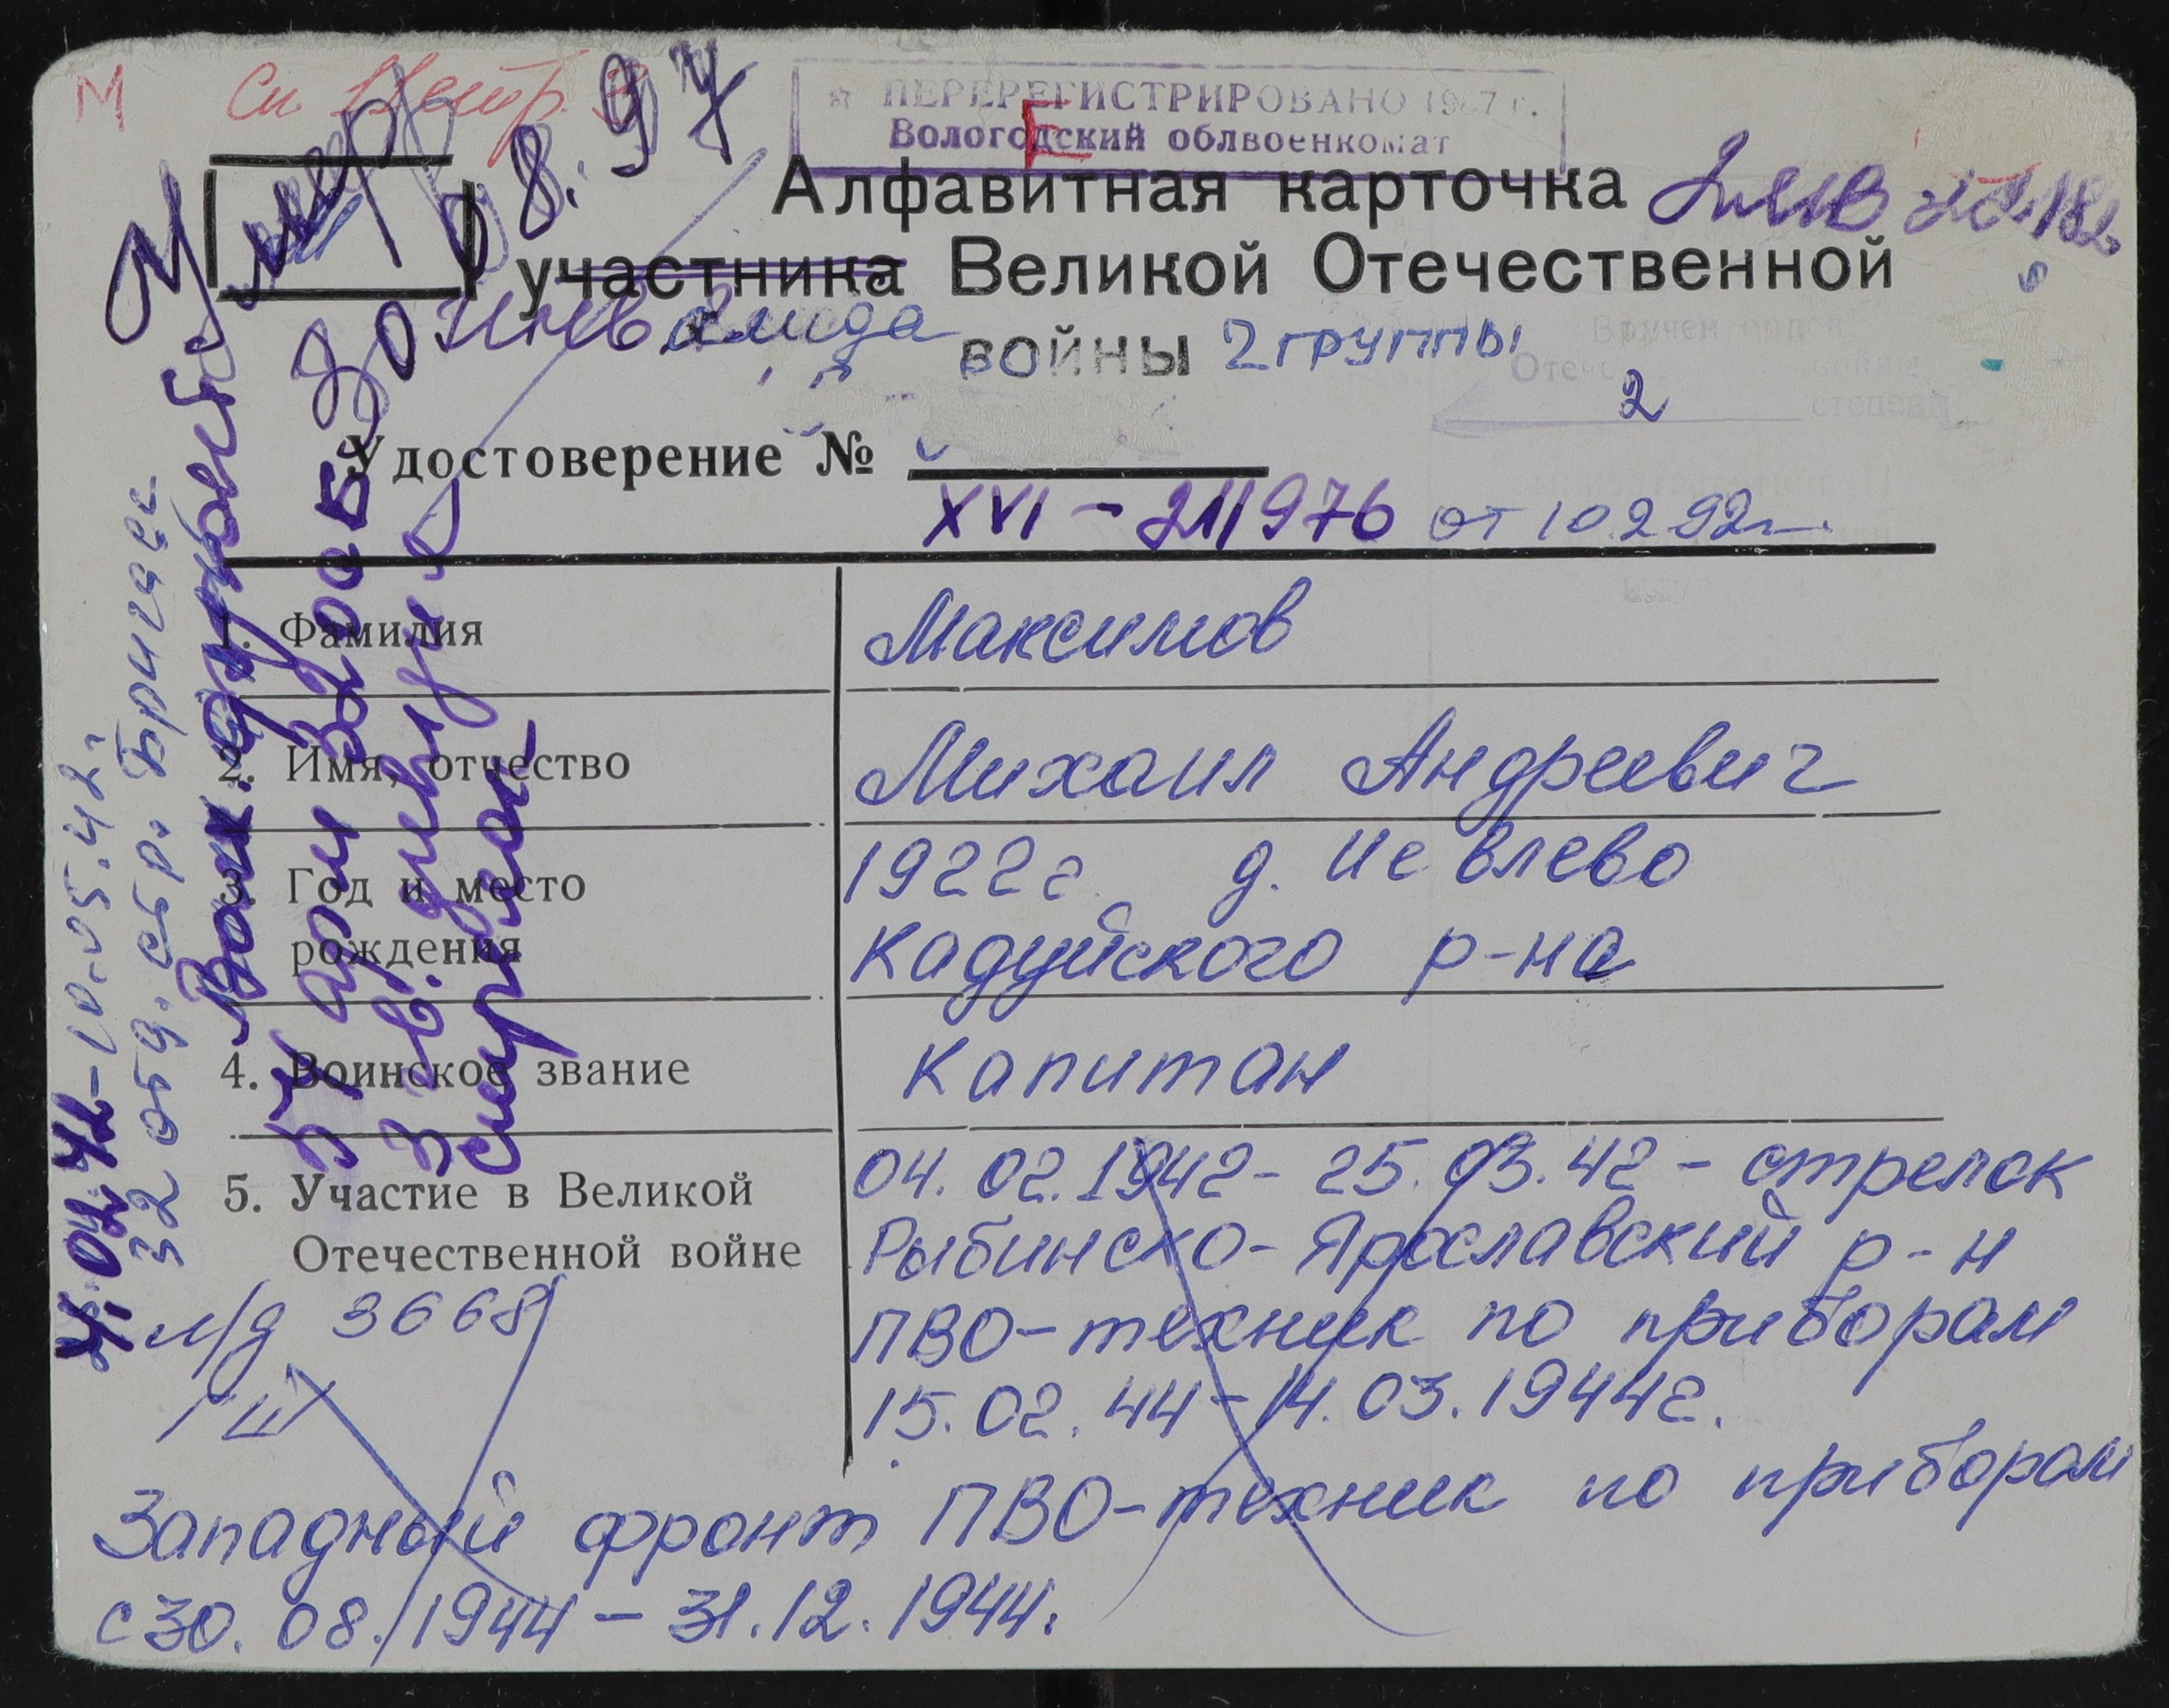 М
ПЕРЕРЕГИСТРИРОВАНО 1987 г.
Вологодский облвоенкомат
Е
Умер 08.97
Алфавитная карточка
участника Великой Отечественной
инвалида войны 2 группы
Вручен орден
Отечественной войны
2 степени
Удостоверение №
XVI - 211976 от 10.2.92г.
1. Фамилия Максимов
2. Имя, отчество Михаил Андреевич
3. Год и место 1922г. д. Иевлево
рождения Кадуйского р-на
4. Воинское звание капитан
5. Участие в Великой 04.02.1942 - 25.03.42 - стрелок
Отечественной войне Рыбинско-Ярославский р-н
м/д 3668 ПВО-техник по приборам
ГШ 15.02.44 - 14.03.1944г.
Западный фронт ПВО-техник по приборам
с 30.08.1944 - 31.12.1944.
4.02.42 - 10.05.42
32 отд. стр. бригаде